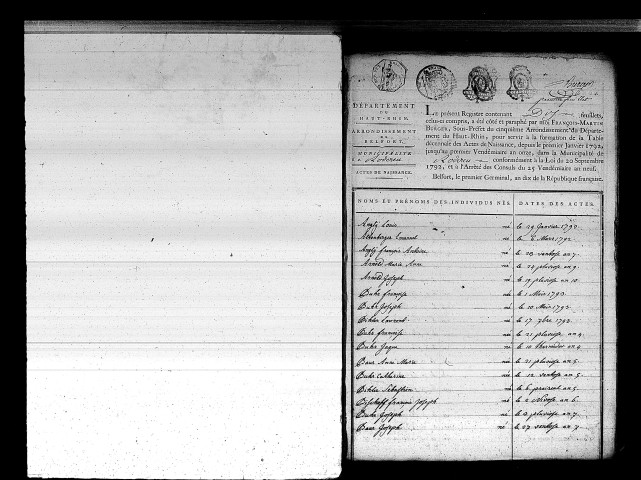 DÉPARTEMENT
DU
HAUT-RHIN.
ARRONDISSEMENT
DE
BELFORT.
MUNICIPALITÉ
ACTES DE NAISSANCE.
Les présent Registre contenant Dix feuillets,
celui-ci compris, a été côté et paraphé par nous FRANÇOIS-MARTIN
BURGER, Sous-Préfet du cinquième Arrondissement du Départe-
ment du Haut-Rhin, pour servir à la formation de la Table
décennale des Actes de Naissance, depuis le premier Janvier 1792,
jusqu'au premier Vendémiaire an onze, dans la Municipalité de
Roderen conformément à la Loi du 20 Septembre
1792, et à l'Arrêté des Consuls du 25 Vendémiaire an neuf.
Belfort, le premier Germinal, an dix de la République française.
NOMS ET PRÉNOMS DES INDIVIDUS NÉS. DATES DES ACTES.
Angly Louis né le 29 Janvier 1792
né le Mars 1792
Angly françois Antoine né le 20 ventose an 7
Arnold Marie Anne née le 24 pluviose an 9
Arnold Joseph né le 19 pluviose an 10
Buhr françoise née le 1 Mars 1793
Buhr Joseph né le 10 1793
Laurent né le 17 7bre 1793
Buhr françoise née le 21 pluviose an 4
Buhr né le 10 thermidor an 4
Baur Anne Marie née le 21 pluviose an 5
Buhr Catherine née le 12 ventose an 5
Sébastien né le 6 prairial an 5
Bischoff françois Joseph né le 2 Nivose an 6
Buhr Joseph né le pluviose an 7
Baur Joseph né le 27 ventose an 7